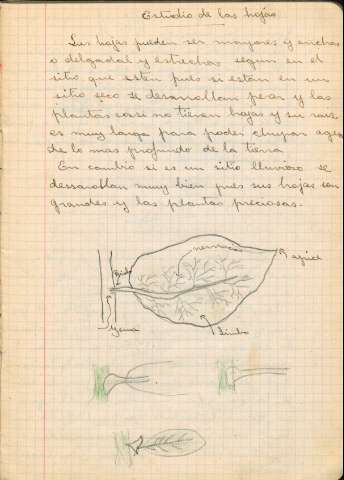 Estudio de las hojas
Las hojas pueden ser mayores y anchas
o delgadas y estrechas segun en el
sitio que esten pues si estan en un
sitio seco se desarrollan peor y las
plantas casi no tienen hojas y su raiz
es muy larga para poder chupar agua
de lo mas profundo de la tierra
En cambio si es un sitio lluvioso se
desarrollan muy bien pues sus hojas son
grandes y las plantas preciosas.
nerviacion
apice
Yema
Limbo